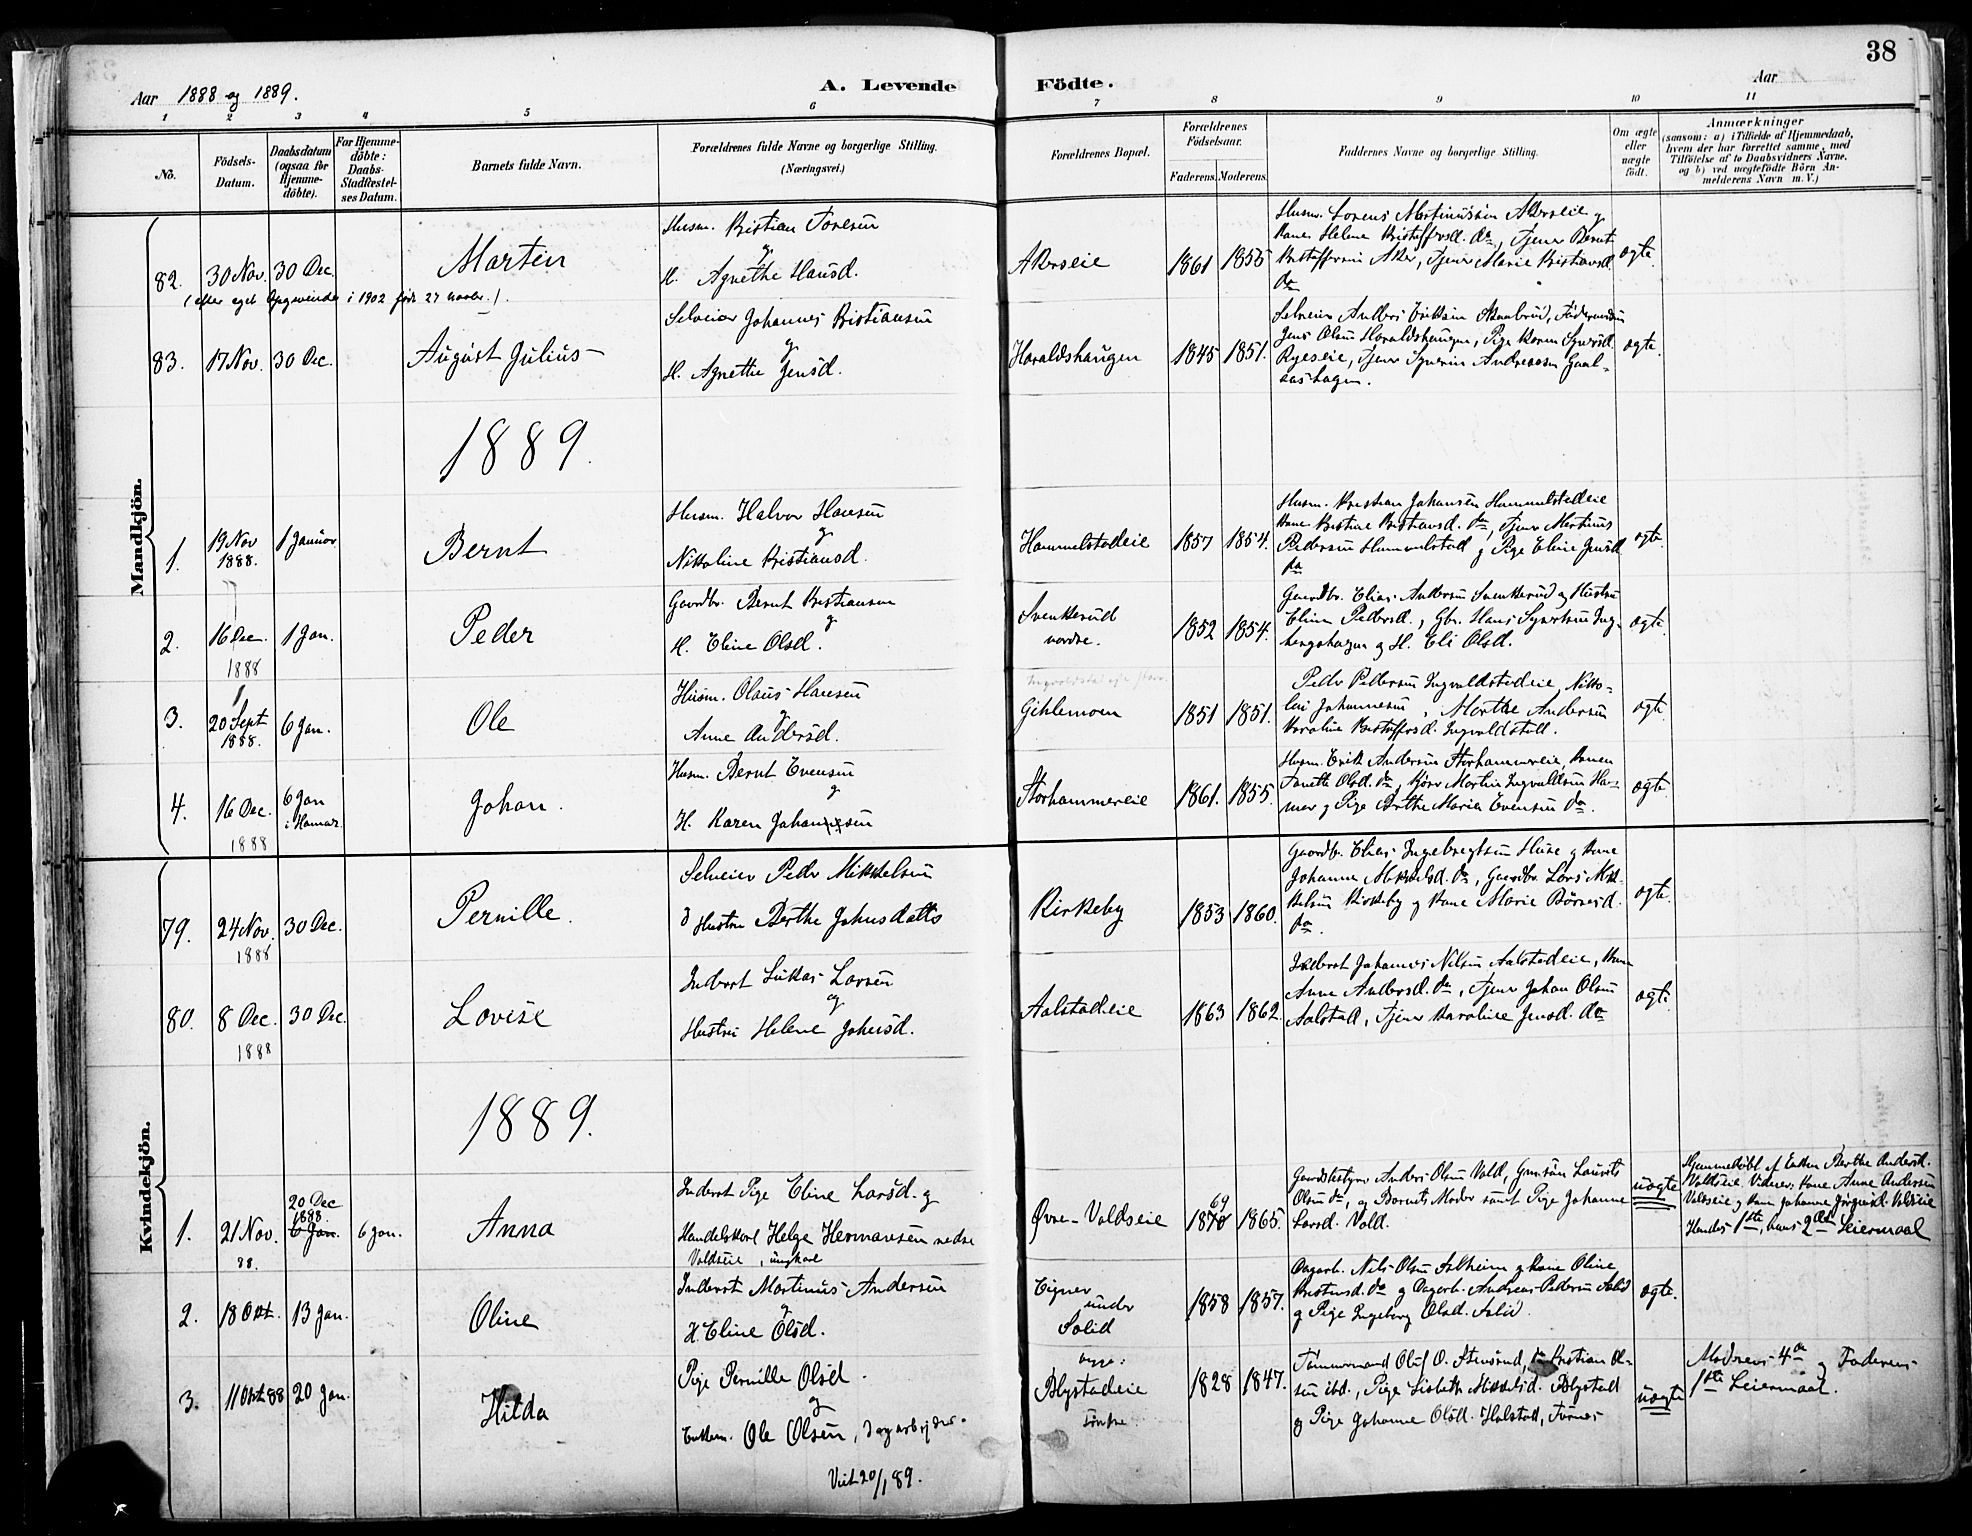 38
Aar 1888 og 1889.
A. Levende Födte.
Aar
1 2 3 4 5 6 7 8 9 10 11
No.
Födsels-
Datum.
Daabsdatum
(ogsaa for
Hjemme-
döbte).
For Hjemme-
döbte:
Daabs-
Stadfæstel-
ses Datum.
Barnets fulde Navn.
Forældrenes fulde Navne og borgerlige Stilling.
(Næringsvei.)
Forældrenes Bopæl.
Forældrenes
Födselsaar.
Faderens. Moderens.
Faddernes Navne og borgerlige Stilling.
Om ægte
eller
uægte
födt.
Anmærkninger
(saasom: a) i Tilfælde af Hjemmedaab,
hvem der har forrettet samme, med
Tilföielse af to Daabsvidners Navne,
og b) ved uægtefödte Börn An-
melderens Navn m. V.)
Mandkjön.
82. 30 Nov. 30 Dec. Martin
Husm. Kristian Toresen
og
H. Agnethe Hansd.
Akerseie 1861 1855
Husm. Lorens Martinussen Akerseie og
Kone Helene Kristoffersd. do, Tjener Bernt
Kristoffersen Aker, Tjener Marie Kristiansd.
do
ægte.
(efter eget Opgivende i 1902 född 27 novbr.).
83. 17 Nov. 30 Dec. August Julius
Selveier Johannes Kristiansen
og
H. Agnethe Jensd.
Haraldshaugen 1845 1851.
Selveier Anders Eriksen
Jens Olsen Haraldshaugen, Pige Karen Syversd.
Ryeseie, Tjener Syverin Andreassen Gaal-
aashagen.
ægte.
1889.
1. 19 Nov 1888. 1 Januar Bernt
Husm. Halvor Hansen
og
Nikoline Kristiansd.
Hammelstadeie 1857 1854.
Husm. Kristian Johansen Hammelstadeie
Kone Kristine Kristiansd. do, Tjener Martinus
Pedersen Hammelstad og Pige Eline Jensd.
do
ægte.
2. 16 Dec. 1888 1 Jan. Peder
Gaardbr. Bernt Kristiansen
og
H. Eline Olsd.
Svenkerud
nordre.
1852 1854.
Gaardbr. Elias Andersen Svenkerud og Hustru
Eline Pedersd., Gbr. Hans Syvertsen Ing-
bergshagen og H. Eli Olsd.
ægte.
3. 20 Sept 1888. 6 Jan. Ole
Husm. Olaus Hansen
og
Anne Andersd.
Gihlemoen 1851 1851.
Peder Pedersen Ingvaldstadeie, Niko-
lai Johannesen, Marthe Andersen
Karoline Kristoffersd. Ingvaldstad.
ægte
4. 16 Dec. 1888 6 Jan i Hamar. Johan.
Husm. Bernt Evensen
og
H. Karen Johannesen
Storhammereie 1861. 1855.
Husm. Erik Andersen Storhammereie, Konen
Janette Olsd. do, Kjörer Martin Ingvaldsen Ha-
mar og Pige Marie Evensen do.
ægte.
Kvindekjön.
79. 24 Nov. 1888 30 Dec. Pernille.
Selveier Peder Mikkelsen
og Hustru Berthe Johnsdatter
Kirkeby 1853 1860.
Gaardbr. Elias Ingebregtsen Huse og Kone
Johanne Mikkelsd. do, Gaardbr. Lars Mik-
kelsen Kirkeby og Kone Marie
do.
ægte.
80. 8 Dec. 1888 30 Dec. Lovise
Inderst Lukas Larsen
og
Hustru Helene Johnsd.
Aalstadeie 1863 1862.
Inderst Johannes Nilsen Aalstadeie, Kone
Anne Andersd. do, Tjener Johan Olsen
Aalstad, Tjener Karoline Jensd. do
ægte.
1889.
1. 21 Nov. 88. 20 Dec 1888. 6 Jan. 6 Jan. Anna
Inderst Pige Eline Larsd. og
Handelskarl Helge Hermansen nedre
Valdseie, ungkarl
Øvre-Valdseie 1870 69 1865.
Gaardbestyrer Anders Olsen Vold, Laurits
Olsen do, og Barnets Moder samt Pige Johanne
Larsd. Vold.
uægte
Hjemmedöbt af Enken Berthe Andersd.
Valdseie. Vidner, Kone Anne Andersen
Valdseie og Kone Johanne Jörgensd. Valdseie
Hendes 1ste, hans 2det Leiermaal
2. 18 Okt. 13 Jan. Oline
Inderst Martinus Andersen
og
H. Eline Olsd.
Eigner
under
Solid
1858 1857.
Dagarb. Nils Olsen Solheim og Kone Oline
Kristensd. do og Dagarb. Andreas Pedersen Solid
og Pige Ingeborg Olsd. Solid.
ægte.
3. 11 Okt 88 20 Jan. Hilda
Pige Pernille Olsd.
og
Enkem. Ole Olsen, Dagarbejder.
Blystadeie
söndre
1828 1847.
Tömmermand Oluf O. Stensrud, Kristian Ol-
sen ibd., Pige Lisbeth Mikkelsd. Blystad
og Pige Johanne Olsd. Halstad, Furnes
uægte
Moderens 4de og Faderens
1ste Leiermaal.
Viet 20/1 89.